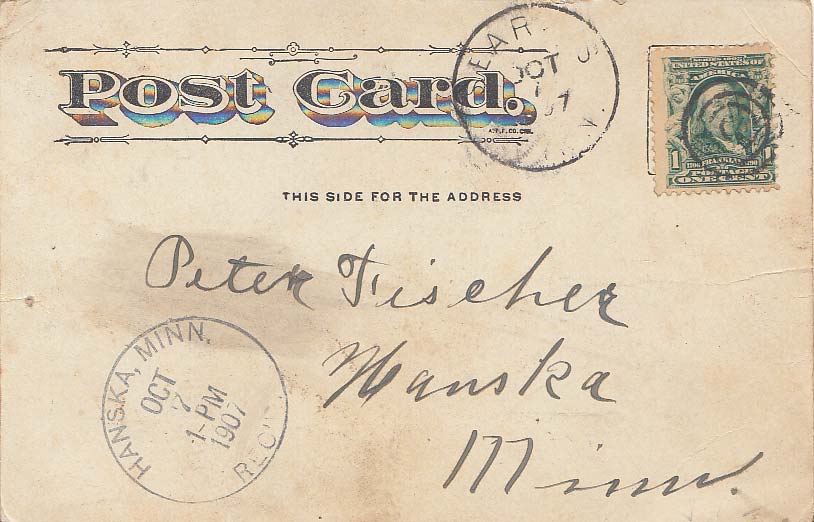 Post Card.
THIS SIDE FOR THE ADDRESS
OCT
7
SERIES 1902
UNITED STATES OF
AMERICA
1 FRANKLIN 1
POSTAGE
ONE CENT
Peter Fischer
Hanska
Minn.
HANSKA, MINN.
OCT
7
1-PM
1907
REC'D.